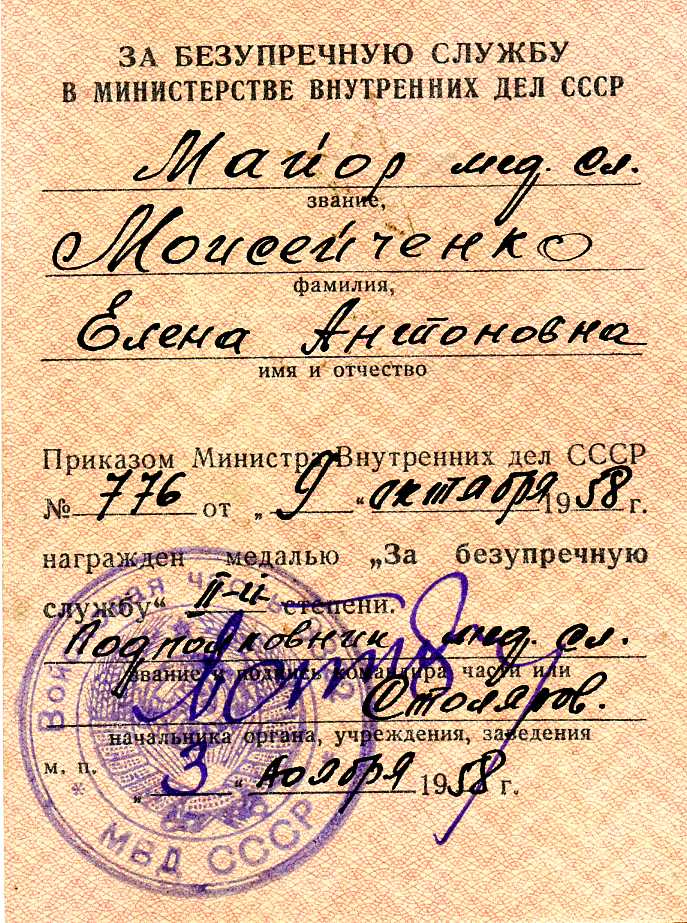 ЗА БЕЗУПРЕЧНУЮ СЛУЖБУ
В МИНИСТЕРСТВЕ ВНУТРЕННИХ ДЕЛ СССР
Майор мед. сл.
звание,
Моисейченко
фамилия,
Елена Антоновна
имя и отчество
Приказом Министра Внутренних дел СССР
№ 776 от „ 9 “ октября 1958 г.
награжден медалью „За безупречную
службу“ II-й степени.
Подполковник мед. сл.
звание и подпись командира части или
Столяров.
начальника органа, учреждения, заведения
м. п. „ 3 “ ноября 1958 г.
МВД СССР